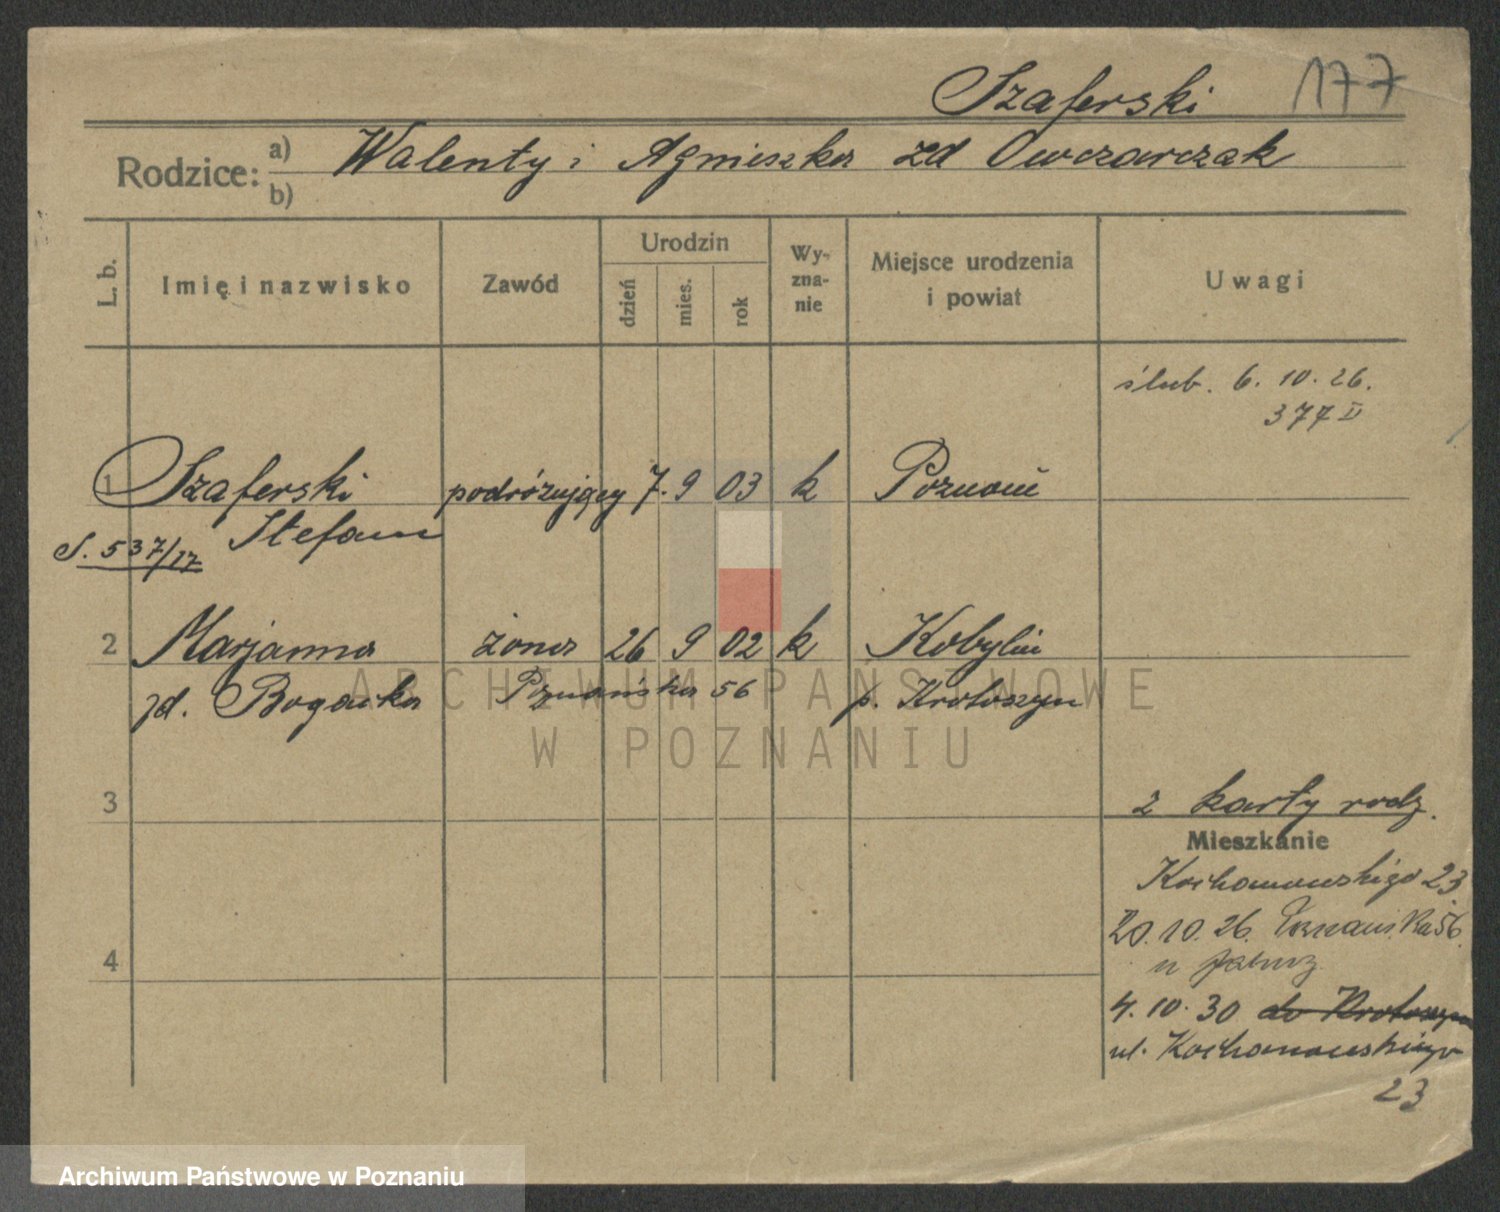 Szaferski 177
Rodzice: a) Walenty i Agnieszka zd Owczarczak
b)
L. b. Imię i nazwisko Zawód Urodzin dzień mies. rok Wy-zna-nie Miejsce urodzenia i powiat Uwagi
ślub. 6. 10. 26.
377 II
1 Szaferski podróżujący 7. 9 03 k Poznań
Stefan
S. 537/17
2 Marjanna żona 26 9 02 k Kobylin
zd. Bogacka Poznańska 56 p. Krotoszyn
ARCHIWUM PAŃSTWOWE
W POZNANIU
3 2 karty rodz.
Mieszkanie
Kochanowskiego 23
20. 10. 26. Poznańska 56.
u
4
4. 10. 30 do Krotoszyn
ul. Kochanowskiego
23
Archiwum Państwowe w Poznaniu